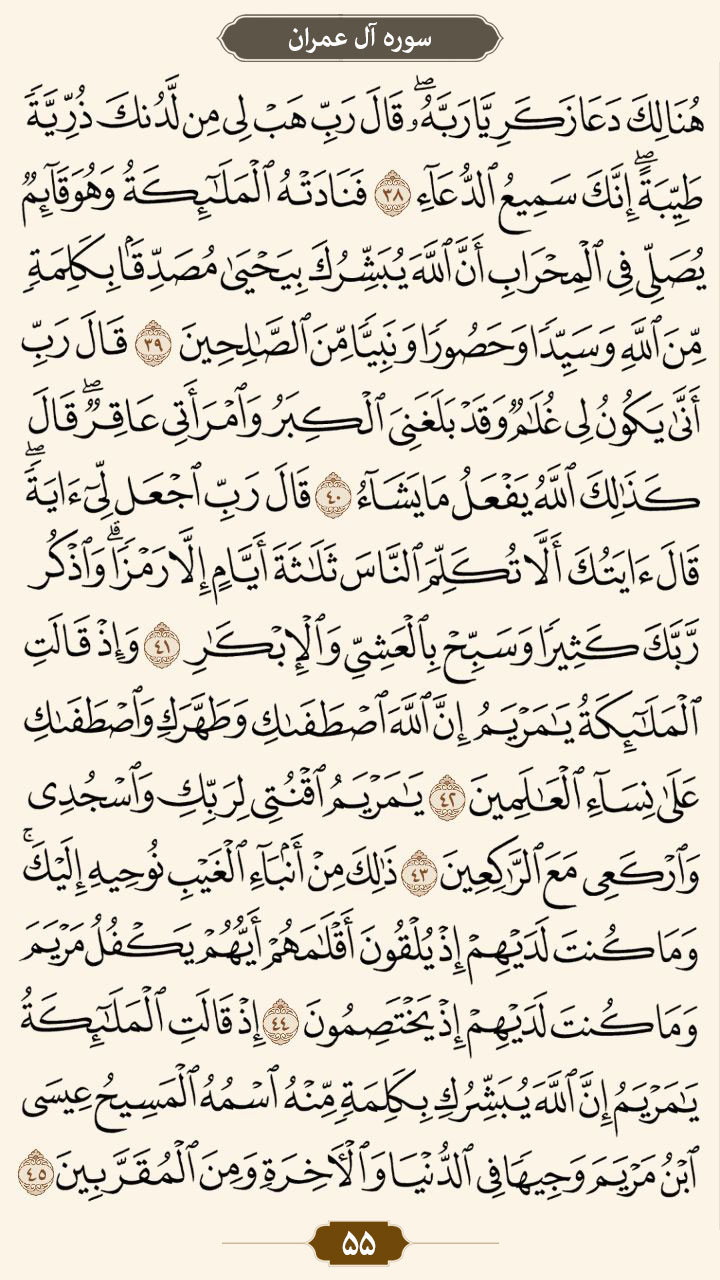 سوره آل عمران
هُنَالِكَ دَعَا زَكَرِيَّا رَبَّهُۥۖ قَالَ رَبِّ هَبْ لِى مِن لَّدُنكَ ذُرِّيَّةً
طَيِّبَةًۖ إِنَّكَ سَمِيعُ ٱلدُّعَآءِ ٣٨ فَنَادَتْهُ ٱلْمَلَٰٓئِكَةُ وَهُوَ قَآئِمٌ
يُصَلِّى فِى ٱلْمِحْرَابِ أَنَّ ٱللَّهَ يُبَشِّرُكَ بِيَحْيَىٰ مُصَدِّقًۢا بِكَلِمَةٍ
مِّنَ ٱللَّهِ وَسَيِّدًا وَحَصُورًا وَنَبِيًّا مِّنَ ٱلصَّٰلِحِينَ ٣٩ قَالَ رَبِّ
أَنَّىٰ يَكُونُ لِى غُلَٰمٌ وَقَدْ بَلَغَنِىَ ٱلْكِبَرُ وَٱمْرَأَتِى عَاقِرٌۖ قَالَ
كَذَٰلِكَ ٱللَّهُ يَفْعَلُ مَا يَشَآءُ ٤٠ قَالَ رَبِّ ٱجْعَل لِّىٓ ءَايَةًۖ
قَالَ ءَايَتُكَ أَلَّا تُكَلِّمَ ٱلنَّاسَ ثَلَٰثَةَ أَيَّامٍ إِلَّا رَمْزًاۗ وَٱذْكُر
رَّبَّكَ كَثِيرًا وَسَبِّحْ بِٱلْعَشِىِّ وَٱلْإِبْكَٰرِ ٤١ وَإِذْ قَالَتِ
ٱلْمَلَٰٓئِكَةُ يَٰمَرْيَمُ إِنَّ ٱللَّهَ ٱصْطَفَىٰكِ وَطَهَّرَكِ وَٱصْطَفَىٰكِ
عَلَىٰ نِسَآءِ ٱلْعَٰلَمِينَ ٤٢ يَٰمَرْيَمُ ٱقْنُتِى لِرَبِّكِ وَٱسْجُدِى
وَٱرْكَعِى مَعَ ٱلرَّٰكِعِينَ ٤٣ ذَٰلِكَ مِنْ أَنۢبَآءِ ٱلْغَيْبِ نُوحِيهِ إِلَيْكَۚ
وَمَا كُنتَ لَدَيْهِمْ إِذْ يُلْقُونَ أَقْلَٰمَهُمْ أَيُّهُمْ يَكْفُلُ مَرْيَمَ
وَمَا كُنتَ لَدَيْهِمْ إِذْ يَخْتَصِمُونَ ٤٤ إِذْ قَالَتِ ٱلْمَلَٰٓئِكَةُ
يَٰمَرْيَمُ إِنَّ ٱللَّهَ يُبَشِّرُكِ بِكَلِمَةٍ مِّنْهُ ٱسْمُهُ ٱلْمَسِيحُ عِيسَى
ٱبْنُ مَرْيَمَ وَجِيهًا فِى ٱلدُّنْيَا وَٱلْءَاخِرَةِ وَمِنَ ٱلْمُقَرَّبِينَ ٤٥
۵۵